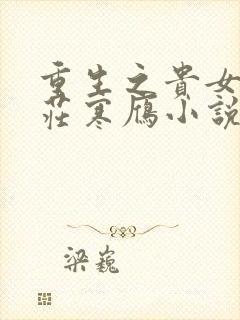 重生之貴女
莊寒雁小說
梁巍